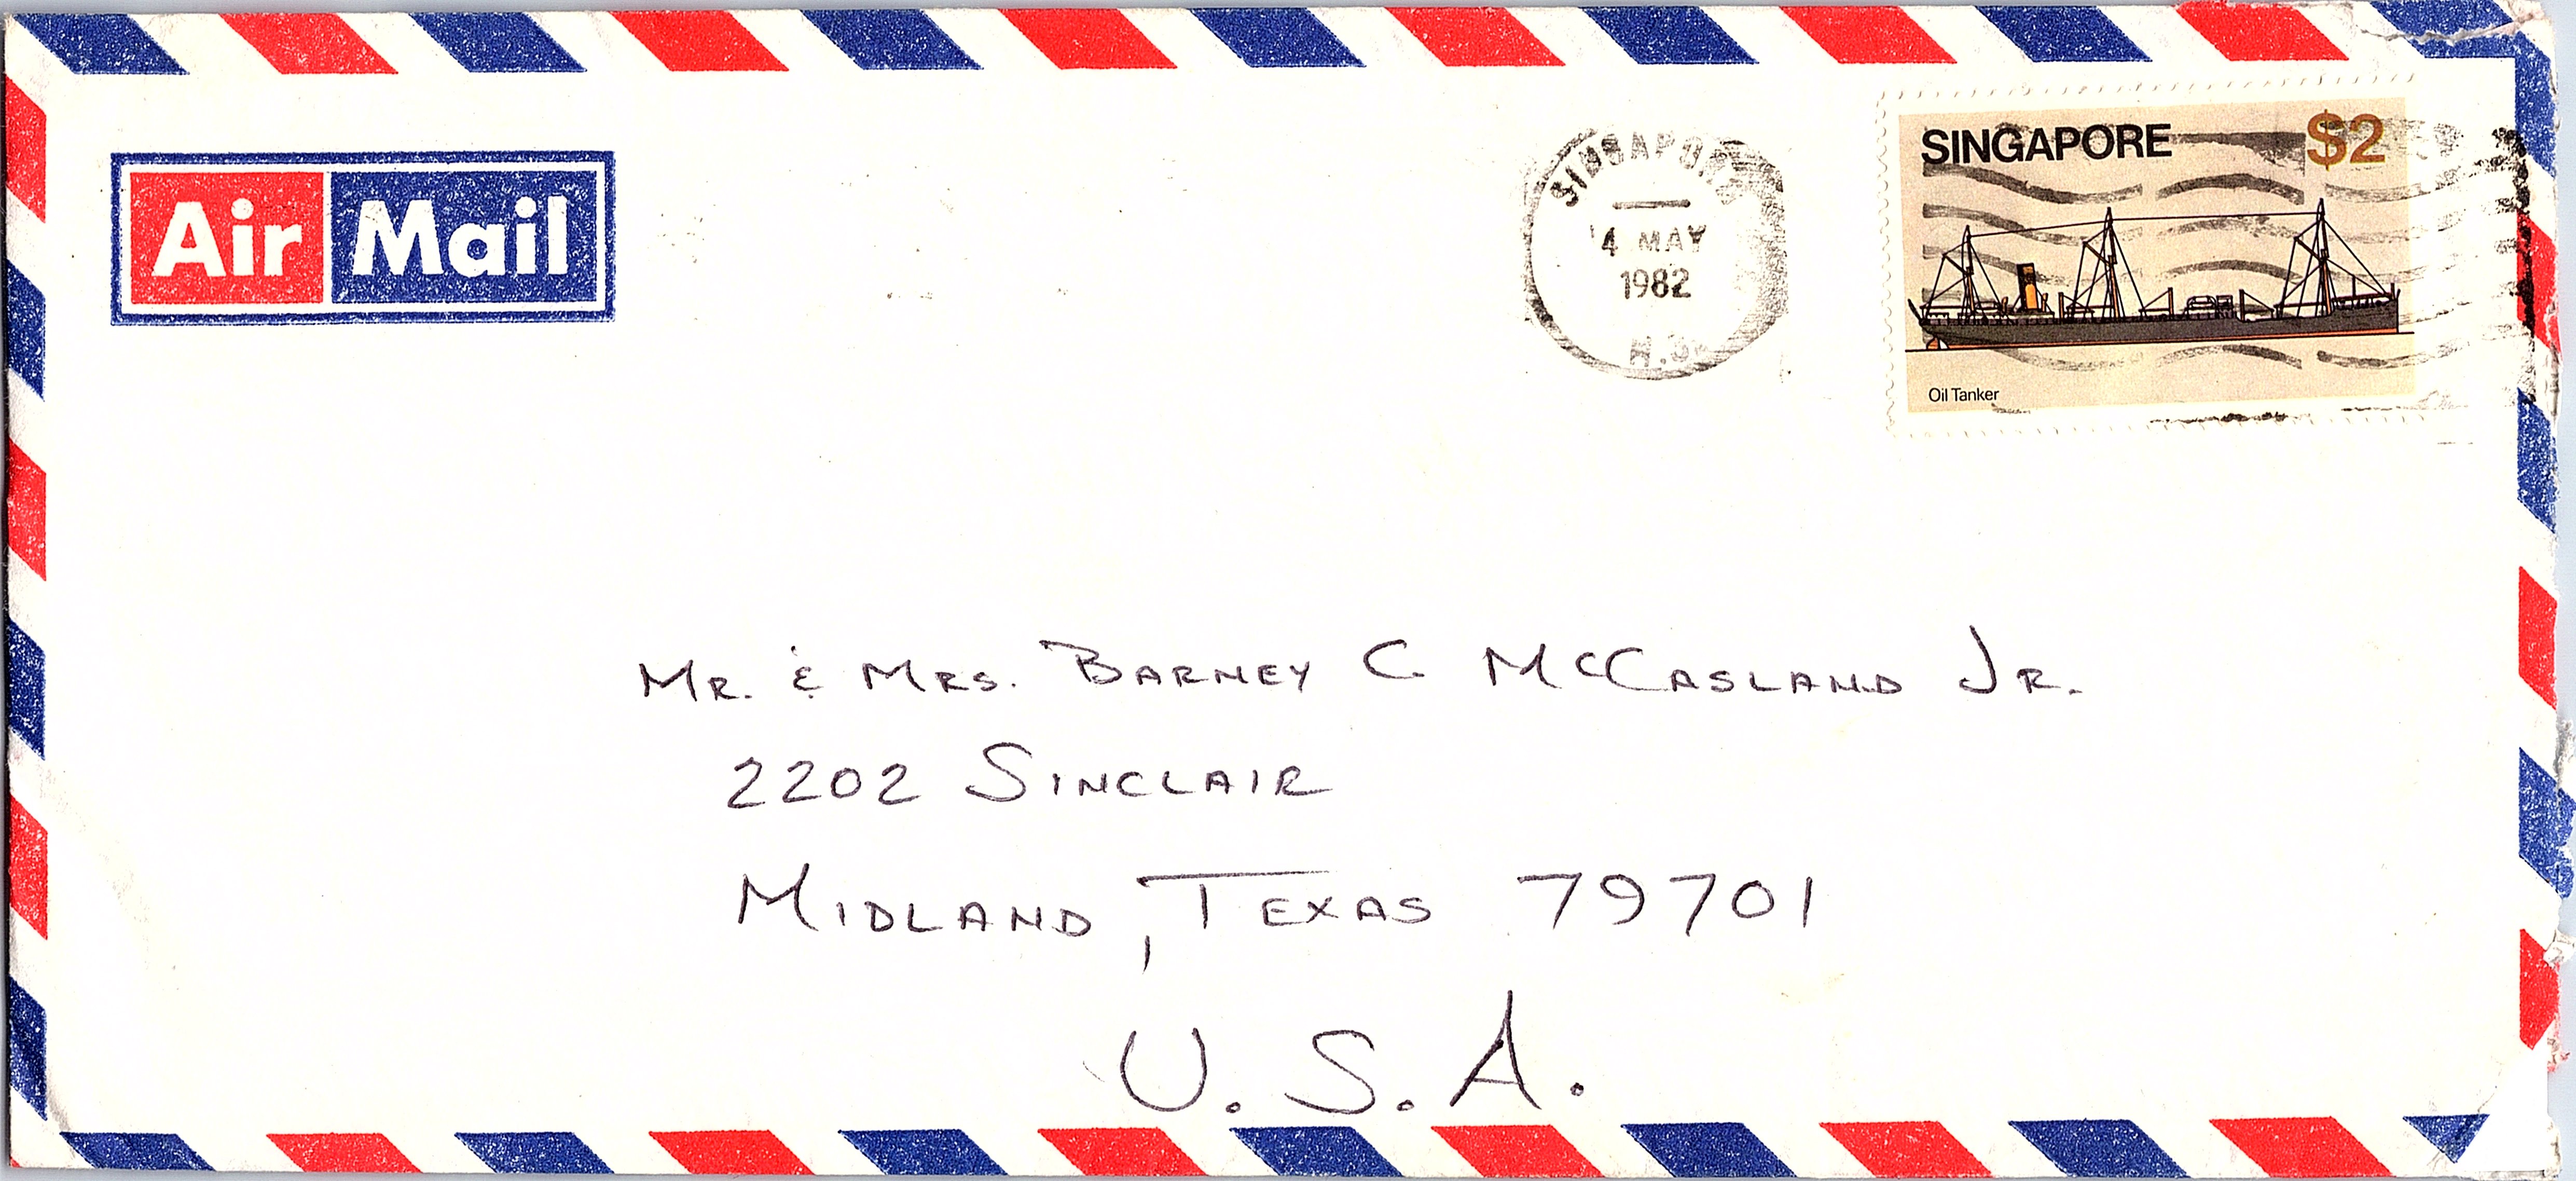 Air Mail
SINGAPORE
4 MAY
1982
SINGAPORE $2
Oil Tanker
MR. & MRS. BARNEY C. McCASLAND JR.
2202 SINCLAIR
MIDLAND, TEXAS 79701
U.S.A.